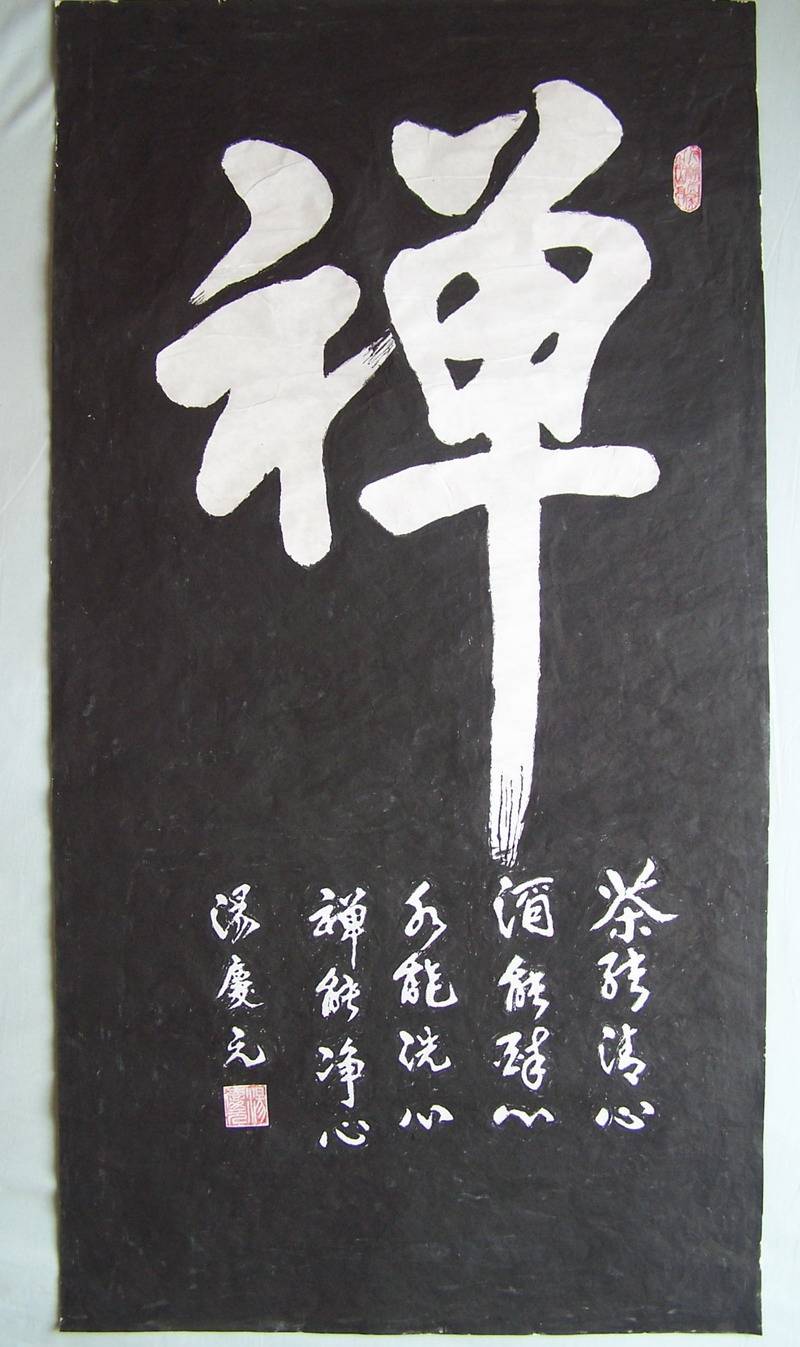 禅
茶能清心
酒能醉心
水能洗心
禅能净心
湯慶元